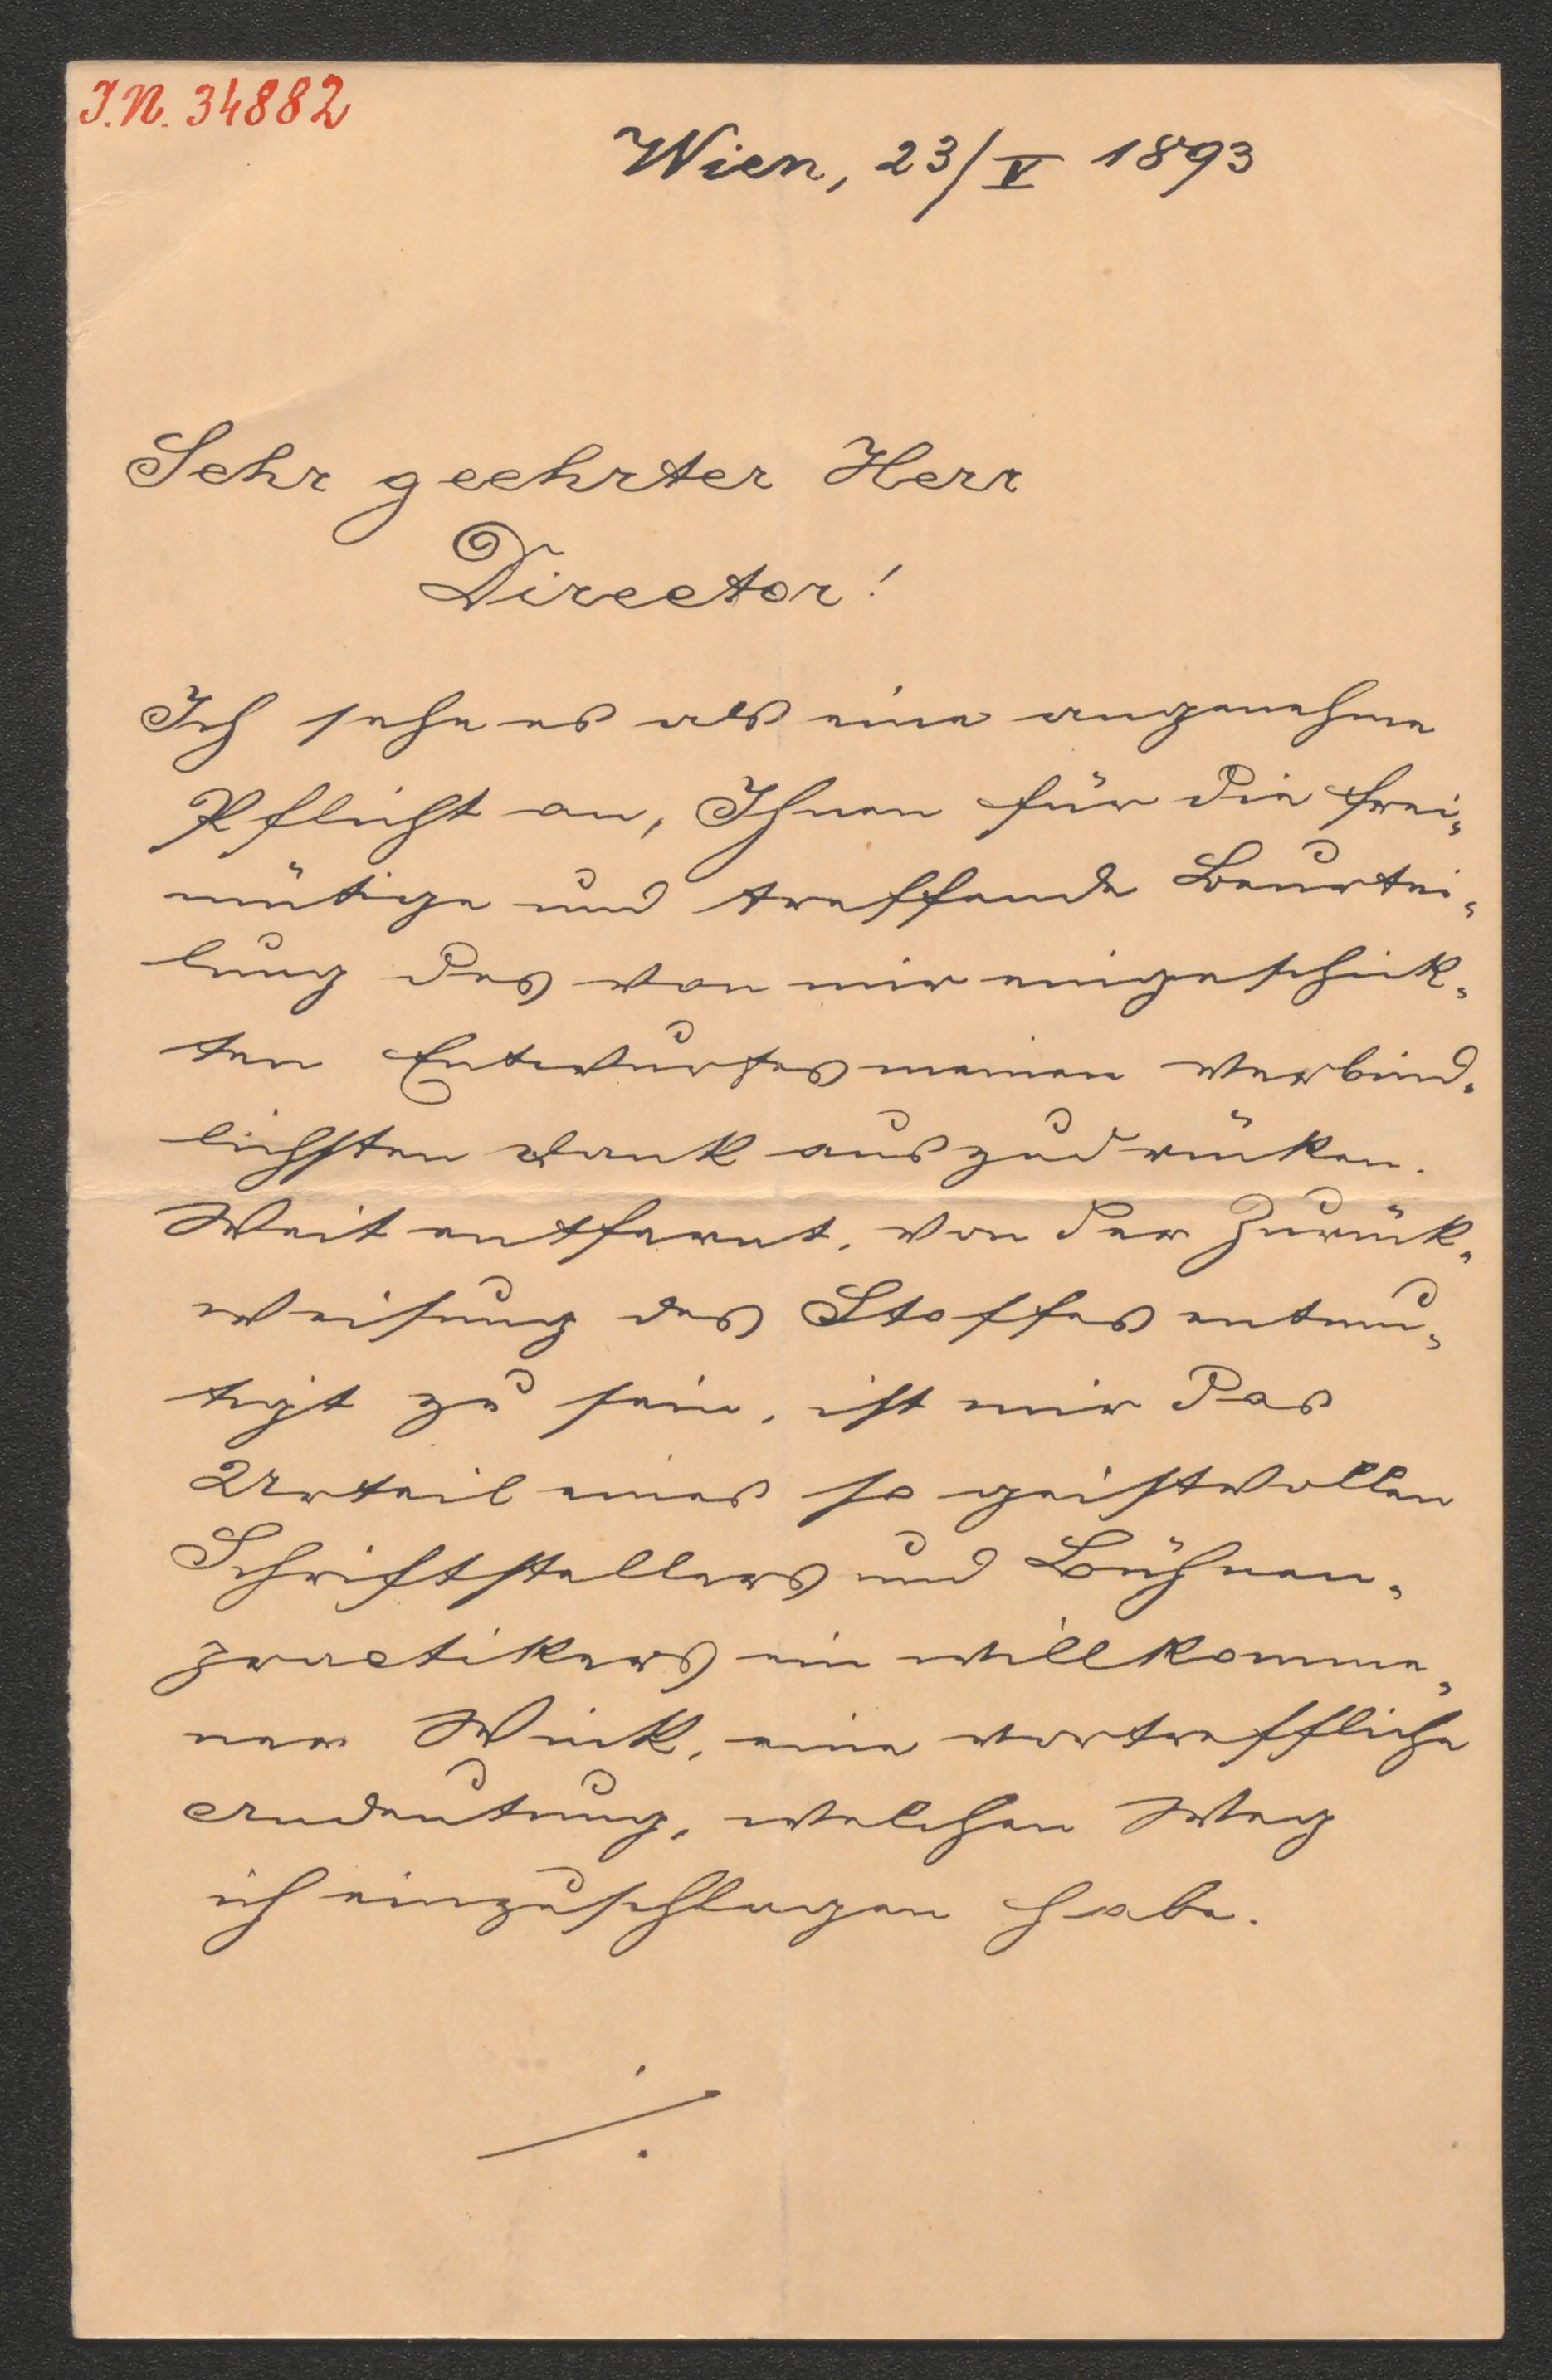 J.N. 34882
Wien, 23/V 1893
Sehr geehrter Herr
Director!
Ich sehe es als eine angenehme
Pflicht an, Ihnen für die frei-
mütige und treffende Beurtei-
lung des von mir eingeschick-
ten Entwurfes meinen verbind-
lichsten Dank auszudrücken.
Weit entfernt, von der Zurück-
weisung des Stoffes entmu-
tigt zu sein, ist mir das
Urteil eines so geistvollen
Schriftstellers und Bühnen-
practikers ein willkomme-
ner Wink, eine vortreffliche
Andeutung, welchen Weg
ich einzuschlagen habe.
./.